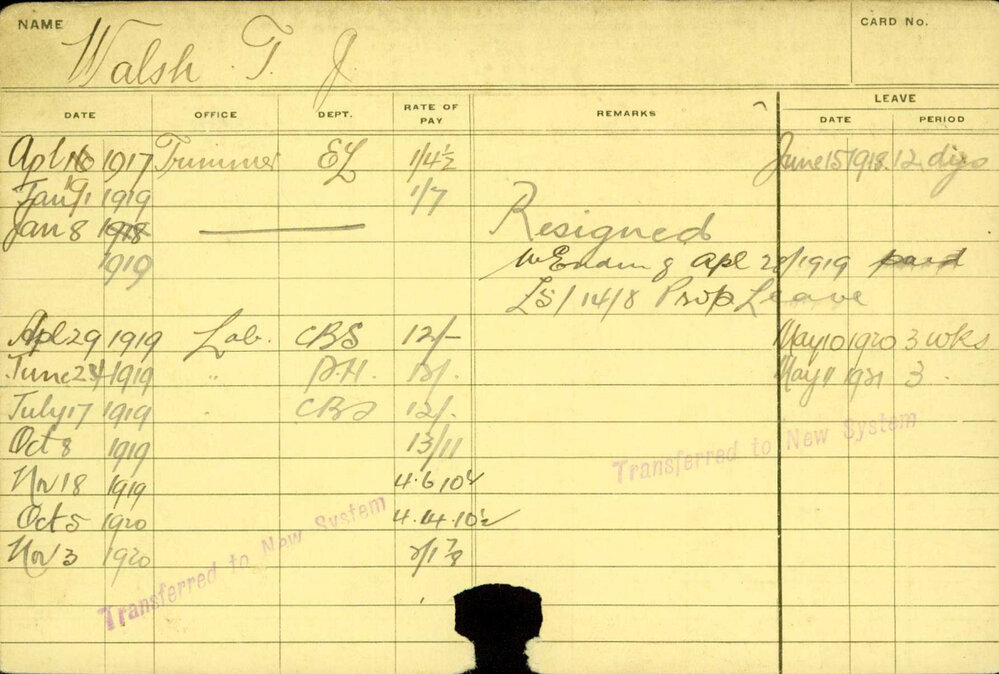 NAME Walsh T. J. CARD No.
DATE OFFICE DEPT. RATE OF PAY REMARKS LEAVE DATE PERIOD
Apl 16 1917 Trimmer EL 1/4½ June 15 1918. 12 days
Jan 1 1919 1/7
Jan 8 1918 Resigned
1919 W Ending Apl 1919 paid
£5/14/8 Prop Leave
Apl 29 1919 Lab. CBS 12/- May 10 1920 3 wks
June 24 1919 " P.H. 12/- May 11 1921 3
July 17 1919 " CBS 12/-
Oct 8 1919 13/11
Nov 18 1919 4.6.10½
Oct 5 1920 4.14.10½
Nov 3 1920 2/1⅞
Transferred to New System
Transferred to New System